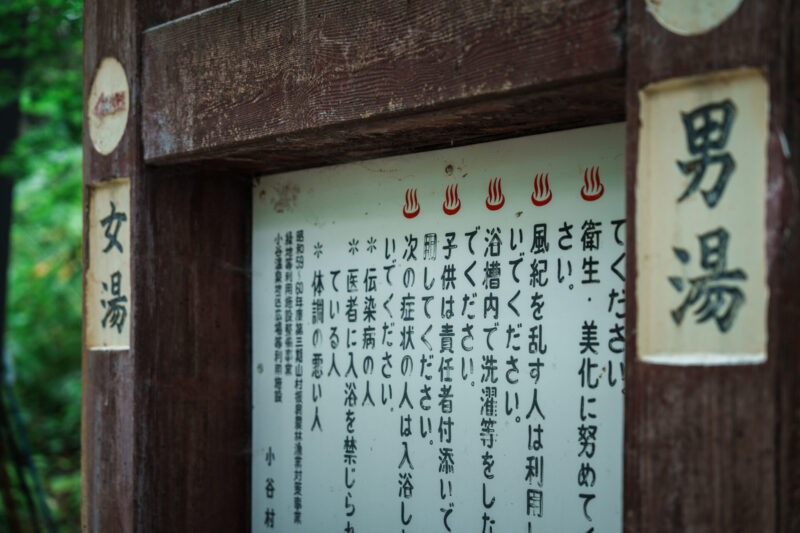 男湯
てください
衛生・美化に努めてく
さい。
風紀を乱す人は利用し
いでください。
浴槽内で洗濯等をした
でください。
子供は責任者付添いで
用してください。
次の症状の人は入浴し
いでください。
＊伝染病の人
＊医者に入浴を禁じられ
ている人
＊体調の悪い人
昭和59～60年度第三期山村振興農林漁業対策事業
緑地等利用施設整備事業
小谷温泉地区広場等利用施設
小谷村
女湯